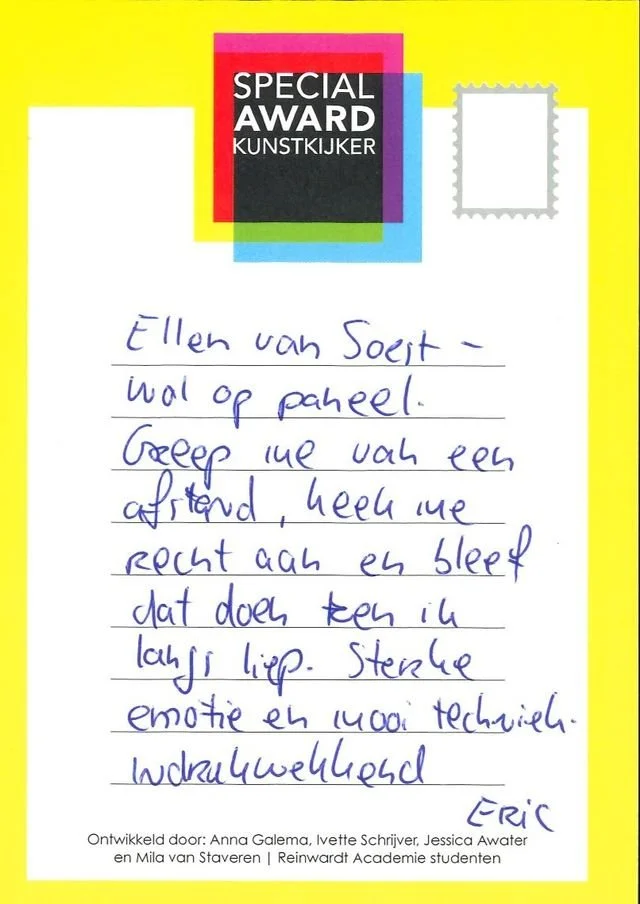 SPECIAL
AWARD
KUNSTKIJKER
Ellen van Soest -
wol op paneel.
Greep me van een
afstand, keek me
recht aan en bleef
dat doen toen ik
langs liep. Sterke
emotie en mooi techniek.
Indrukwekkend
ERIC
Ontwikkeld door: Anna Galema, Ivette Schrijver, Jessica Awater
en Mila van Staveren | Reinwardt Academie studenten